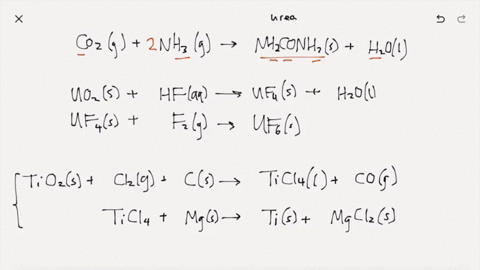 urea
CO2(g) + 2NH3(g) → NH2CONH2(s) + H2O(l)
UO2(s) + HF(aq) → UF4(s) + H2O(l)
UF4(s) + F2(g) → UF6(s)
TiO2(s) + Cl2(g) + C(s) → TiCl4(l) + CO(g)
TiCl4 + Mg(s) → Ti(s) + MgCl2(s)